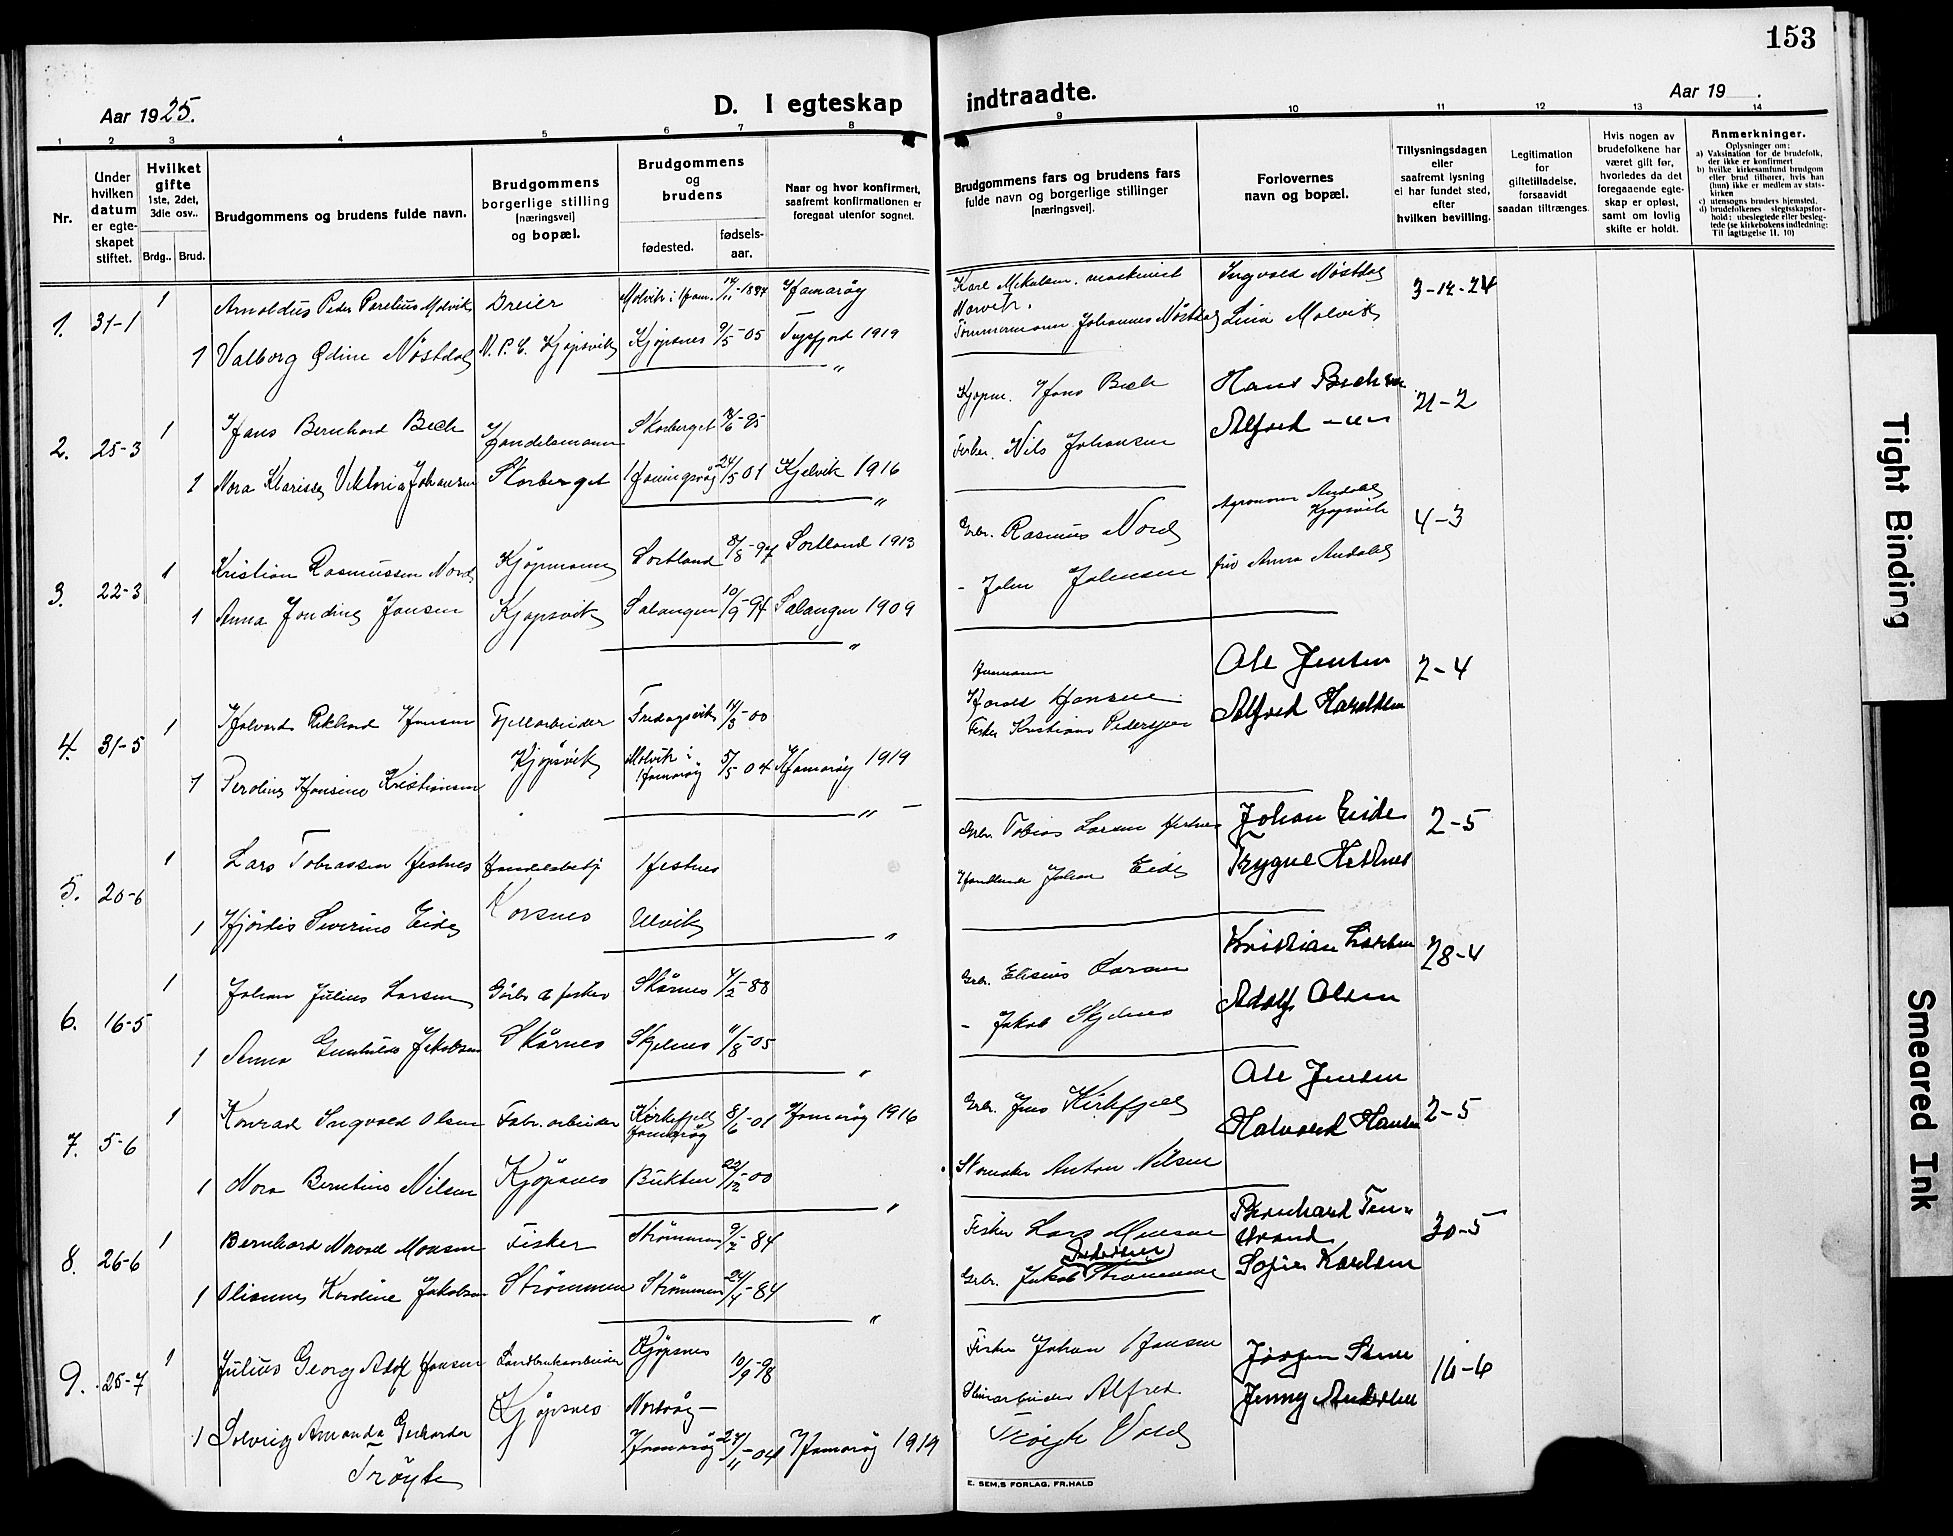 153
Aar 1925.
D. I egteskap indtraadte.
Aar 19 .
1 2 3 4 5 6 7 8 9 10 11 12 13 14
Nr.
Under hvilken datum er egte-skapet stiftet.
Hvilket gifte 1ste, 2det, 3die osv..
Brdg.. Brud.
Brudgommens og brudens fulde navn.
Brudgommens borgerlige stilling [næringsvei] og bopæl.
Brudgommens og brudens
fødested.
fødsels-aar.
Naar og hvor konfirmert, saafremt konfirmationen er foregaat utenfor sognet.
Brudgommens fars og brudens fars fulde navn og borgerlige stillinger [næringsvei].
Forlovernes navn og bopæl.
Tillysningsdagen eller saafremt lysning ei har fundet sted, efter hvilken bevilling.
Legitimation for giftetilladelse, forsaavidt saadan tiltrænges.
Hvis nogen av brudefolkene har været gift før, hvorledes da det foregaaende egte-skap er opløst, samt om lovlig skifte er holdt.
Anmerkninger.
Oplysninger om:
a) Vaksination for de brudefolk, der ikke er konfirmert
b) hvilke kirkesamfund brudgom eller brud tilhører, hvis han (hun) ikke er medlem av stats-kirken
c) utensogns bruders hjemsted.
d) brudefolkenes slegtsskapsfor-hold: ubeslegtede eller besleg-tede (se kirkebokens indledning: Til iagttagelse 11, 10)
1. 31-1 1 Arnoldus Peder Perelius Molvik Dreier Molvik i Ham. Hamarøy Karl Mikalsen. maskinist Narvik. Ingvald Nøstdal 3-12-24
1 Valborg Odine Nøstdal N. P. C. Kjøpsvik Kjøpsnes 9/5-05 Tysfjord 1919 Tømmermann Johannes Nøstdal Lina Molvik
2. 25-3 1 Hans Bernhard Bech Handelsmann Skorberget Kjøpm. Hans Bech Hans Bech 21-2
1 Nora Klarisse Viktoria Johansen Skorberget Honingsvåg 24/5 01 Kjelvik 1916 Fisker. Nils Johansen Alfred -"-
3. 22-3 1 Kristian Rasmussen Nord Kjøpmann Sortland 8/8-97 Sortland 1913 Grbr. Rasmus Nord Agronom Andal Kjøpsvik 4-3
1 Anna Jondine Jansen Kjøpsvik Salangen 10/9-94 Salangen 1909 - John Johansen fru Anna Andal
4. 31-5 1 Halvard Rikhard Hansen Fjellarbeider Fredagsvik 14/3-00 Harald Hansen Ole Jensen 2-4
1 Peroline Hansine Kristiansen Kjøpsvik Molvik i Hamarøy 5/5 04 Hamarøy 1919 Fisker Kristian Pedersen Alfred Haraldsen
5. 20-6 1 Lars Tobiassen Hestnes Handelsbetj Hestnes Grbr. Tobias Larsen Hestnes Johan Eide 2-5
1 Hjørdis Severine Eide Korsnes Ulvik Handlende Johan Eide Trygve Hestnes
6. 16-5 1 Johan Julius Larsen Gårbr & fisker Skårnes 4/2-88 Grbr. Elisæus Larsen Kristian Larsen 28-4
1 Anna Gunhilda Jakobsen Skårnes Skjelnes 11/8-05 - Jakob Skjelnes Adolf Olsen
7. 5-6 1 Konrad Ingvald Olsen Fabr. arbeider Kirkefjell Hamarøy 8/6-01 Hamarøy 1916 Grbr. Jens Kirkfjell Ole Jensen 2-5
1 Nora Berntine Nilsen Kjøpsnes Bukten 22/12-00 Skomaker Anton Nilsen Halvard Hansen
8. 26-6 1 Bernhard Norvod Monsen Fisker Strømmen 9/7-84 Fisker Lars Monsen Bernhard Tennstrand 30-5
1 Oliannes Kordine Jakobsen Strømmen Strømmen 24/4-84 Grbr. Jakob Strømmen Pedersen Sofie Karlsen
9. 25-7 1 Julius Georg Adolf Hansen Landbruksarbeider Kjøpsnes 10/9-98 Fisker Johan Hansen Jørgen Stene 16-6
1 Solveig Amanda Gerharda Trøyte Kjøpsnes Nordvåg - Hamarøy 24/11-04 Hamarøy 1919 Alfred Trøyte Vold Jenny Andersen
E. SEM.S FORLAG, FR.HALD
Tight Binding
Smeared Ink